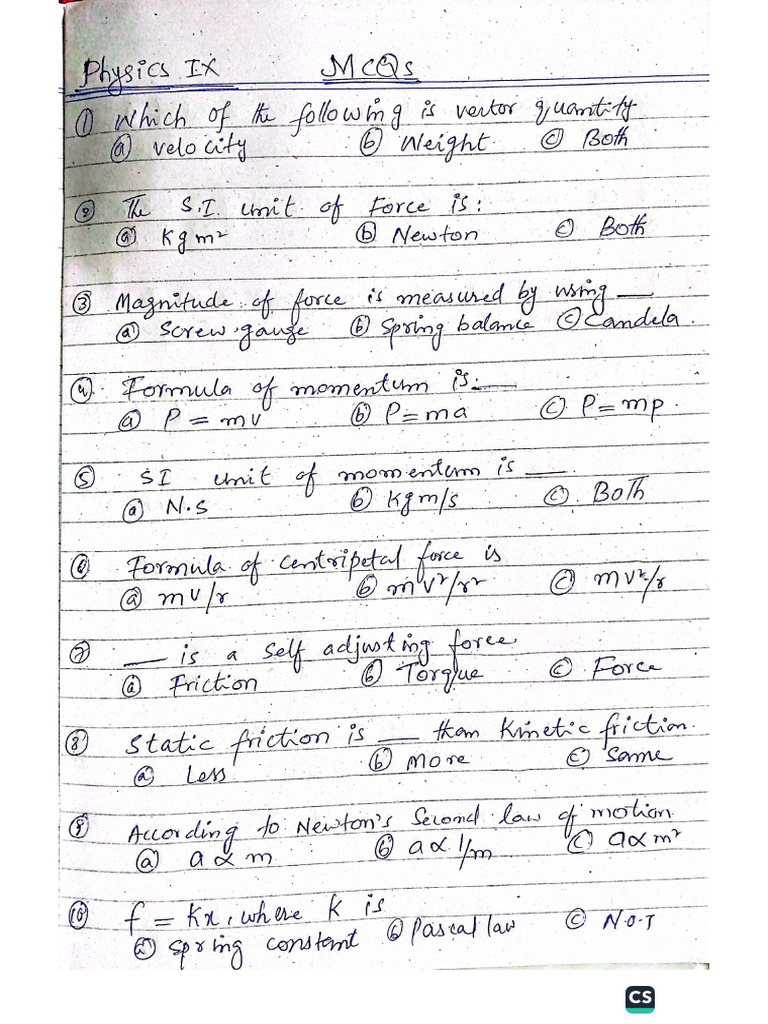 Physics IX MCQs
① Which of the following is vector quantity
ⓐ velocity ⓑ Weight ⓒ Both
② The S.I. unit of Force is:
ⓐ Kgm² ⓑ Newton ⓒ Both
③ Magnitude of force is measured by using __
ⓐ Screw gauge ⓑ Spring balance ⓒ Candela.
④ Formula of momentum is:__
ⓐ P = mv ⓑ P = ma ⓒ P = mp.
⑤ SI unit of momentum is __.
ⓐ N.S ⓑ Kgm/s ⓒ Both
⑥ Formula of centripetal force is
ⓐ mv/r ⓑ mv²/r² ⓒ mv²/r
⑦ __ is a self adjusting force.
ⓐ Friction ⓑ Torque ⓒ Force
⑧ Static friction is __ than Kinetic friction.
ⓐ Less ⓑ More ⓒ Same
⑨ According to Newton's Second law of motion
ⓐ a ∝ m ⓑ a ∝ 1/m ⓒ a ∝ m²
⑩ f = Kx, where K is
ⓐ Spring constant ⓑ Pascal law ⓒ N.O.T
CS